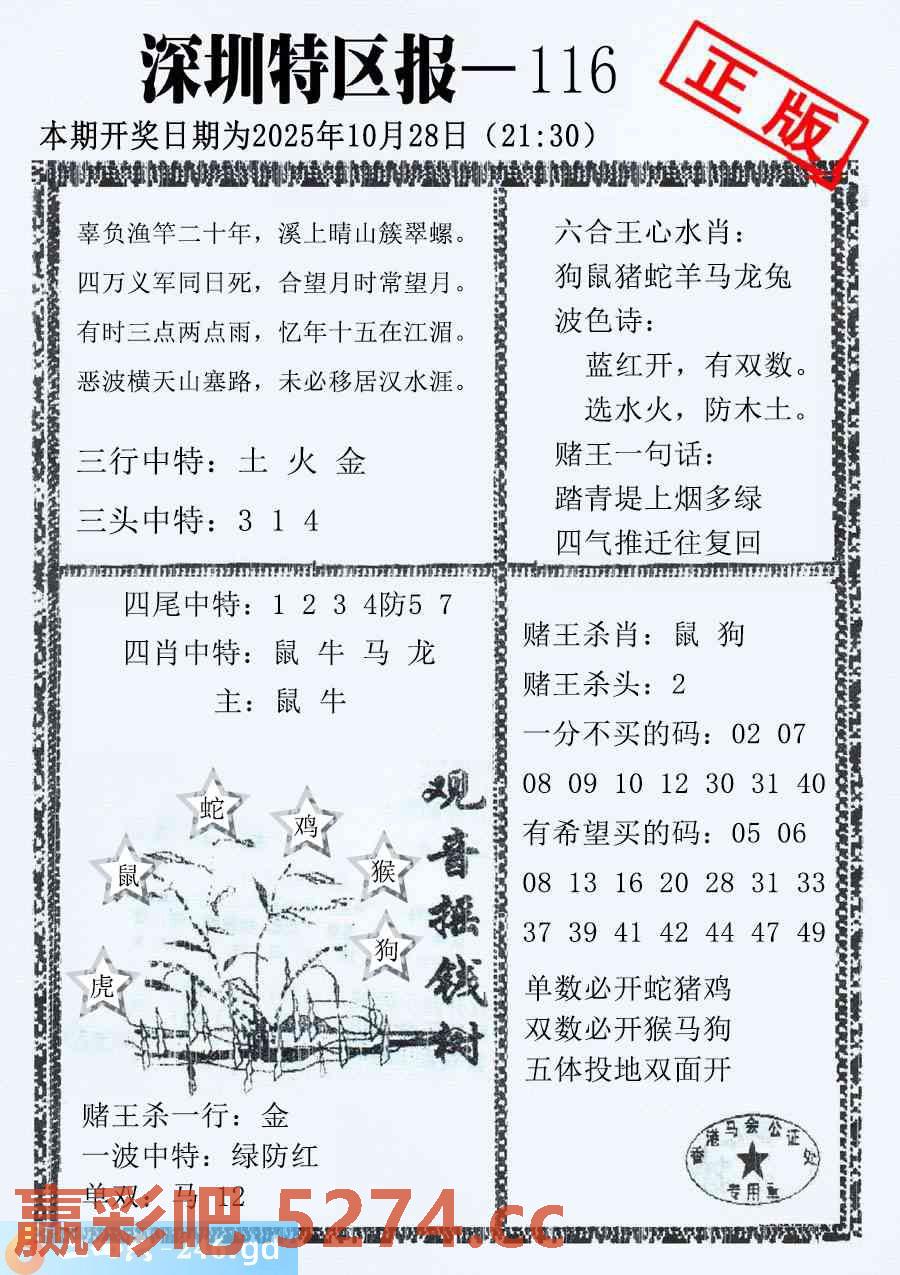 深圳特区报—116
正版
本期开奖日期为2025年10月28日（21:30）
辜负渔竿二十年，溪上晴山簇翠螺。
四万义军同日死，合望月时常望月。
有时三点两点雨，忆年十五在江湄。
恶波横天山塞路，未必移居汉水涯。
三行中特：土 火 金
三头中特：3 1 4
六合王心水肖：
狗鼠猪蛇羊马龙兔
波色诗：
蓝红开，有双数。
选水火，防木土。
赌王一句话：
踏青堤上烟多绿
四气推迁往复回
四尾中特：1 2 3 4防5 7
四肖中特：鼠 牛 马 龙
主：鼠 牛
蛇
鸡
鼠
猴
狗
虎
观音摇钱树
赌王杀一行：金
一波中特：绿防红
单双：马 12
赌王杀肖：鼠 狗
赌王杀头：2
一分不买的码：02 07
08 09 10 12 30 31 40
有希望买的码：05 06
08 13 16 20 28 31 33
37 39 41 42 44 47 49
单数必开蛇猪鸡
双数必开猴马狗
五体投地双面开
香港马会公证处
专用章
赢彩吧 5274.cc